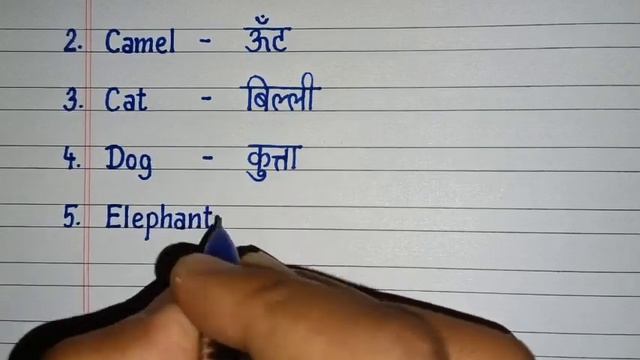 2. Camel - ऊँट
3. Cat - बिल्ली
4. Dog - कुत्ता
5. Elephant